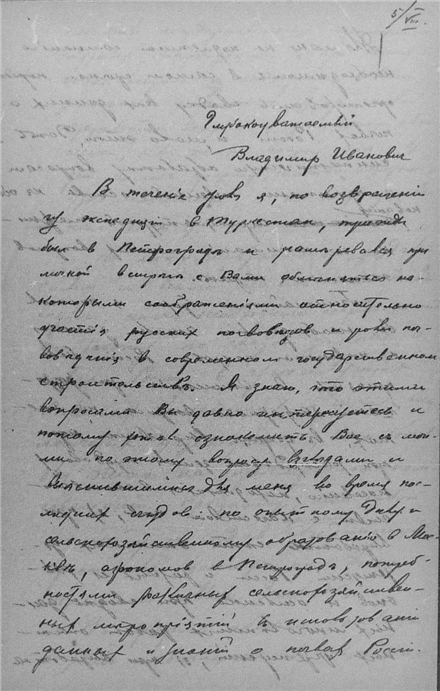 5/VII.
Глубокоуважаемый
Владимир Иванович
В течение я, по возвращении
из экспедиции в Туркестан, трижды
был в Петрограде и намеревался при
личной встрече с Вами обменяться не-
которыми соображениями относительно
участия русских почвоведов и роли по-
чвоведения в современном государственном
строительстве. Я знаю, что этими
вопросами Вы давно интересуетесь и
потому хотел ознакомить Вас с мои-
ми по этому вопросу взглядами и
выяснившимися для меня во время по-
следних съездов: по опытному делу и
сельскохозяйственному образованию в Мос-
кве, агрономов в Петрограде, потреб-
ностями различных сельскохозяйствен-
ных мероприятий в использовании
данных и знаний о почвах России.